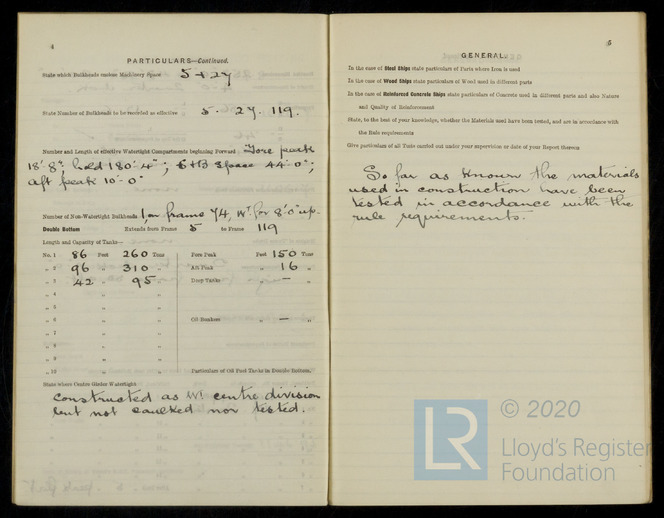 4
PARTICULARS—Continued.
State which Bulkheads enclose Machinery Space 5 + 27
State Number of Bulkheads to be recorded as effective 5. 27. 119.
Number and Length of effective Watertight Compartments beginning Forward Fore peak
18'-8"; hold 180'-4"; E+B space 44'-0";
aft peak 10'-0"
Number of Non-Watertight Bulkheads 1 on frame 74, WT for 8'0" up.
Double Bottom Extends from Frame 5 to Frame 119
Length and Capacity of Tanks—
No. 1 86 Feet 260 Tons Fore Peak Feet 150 Tons
„ 2 96 „ 310 „ Aft Peak „ 16 „
„ 3 42 „ 95 „ Deep Tanks „ — „
„ 4 „ „
„ 5 „ „
„ 6 „ „ Oil Bunkers „ — „
„ 7 „ „
„ 8 „ „
„ 9 „ „
„ 10 „ „ Particulars of Oil Fuel Tanks in Double Bottom.
State where Centre Girder Watertight
Constructed as WT centre division
but not caulked nor tested.
5
GENERAL.
In the case of Steel Ships state particulars of Parts where Iron is used
In the case of Wood Ships state particulars of Wood used in different parts
In the case of Reinforced Concrete Ships state particulars of Concrete used in different parts and also Nature
and Quality of Reinforcement
State, to the best of your knowledge, whether the Materials used have been tested, and are in accordance with
the Rule requirements
Give particulars of all Tests carried out under your supervision or date of your Report thereon
So far as known the materials
used in construction have been
tested in accordance with the
rule requirements.
LR
© 2020
Lloyd's Register
Foundation